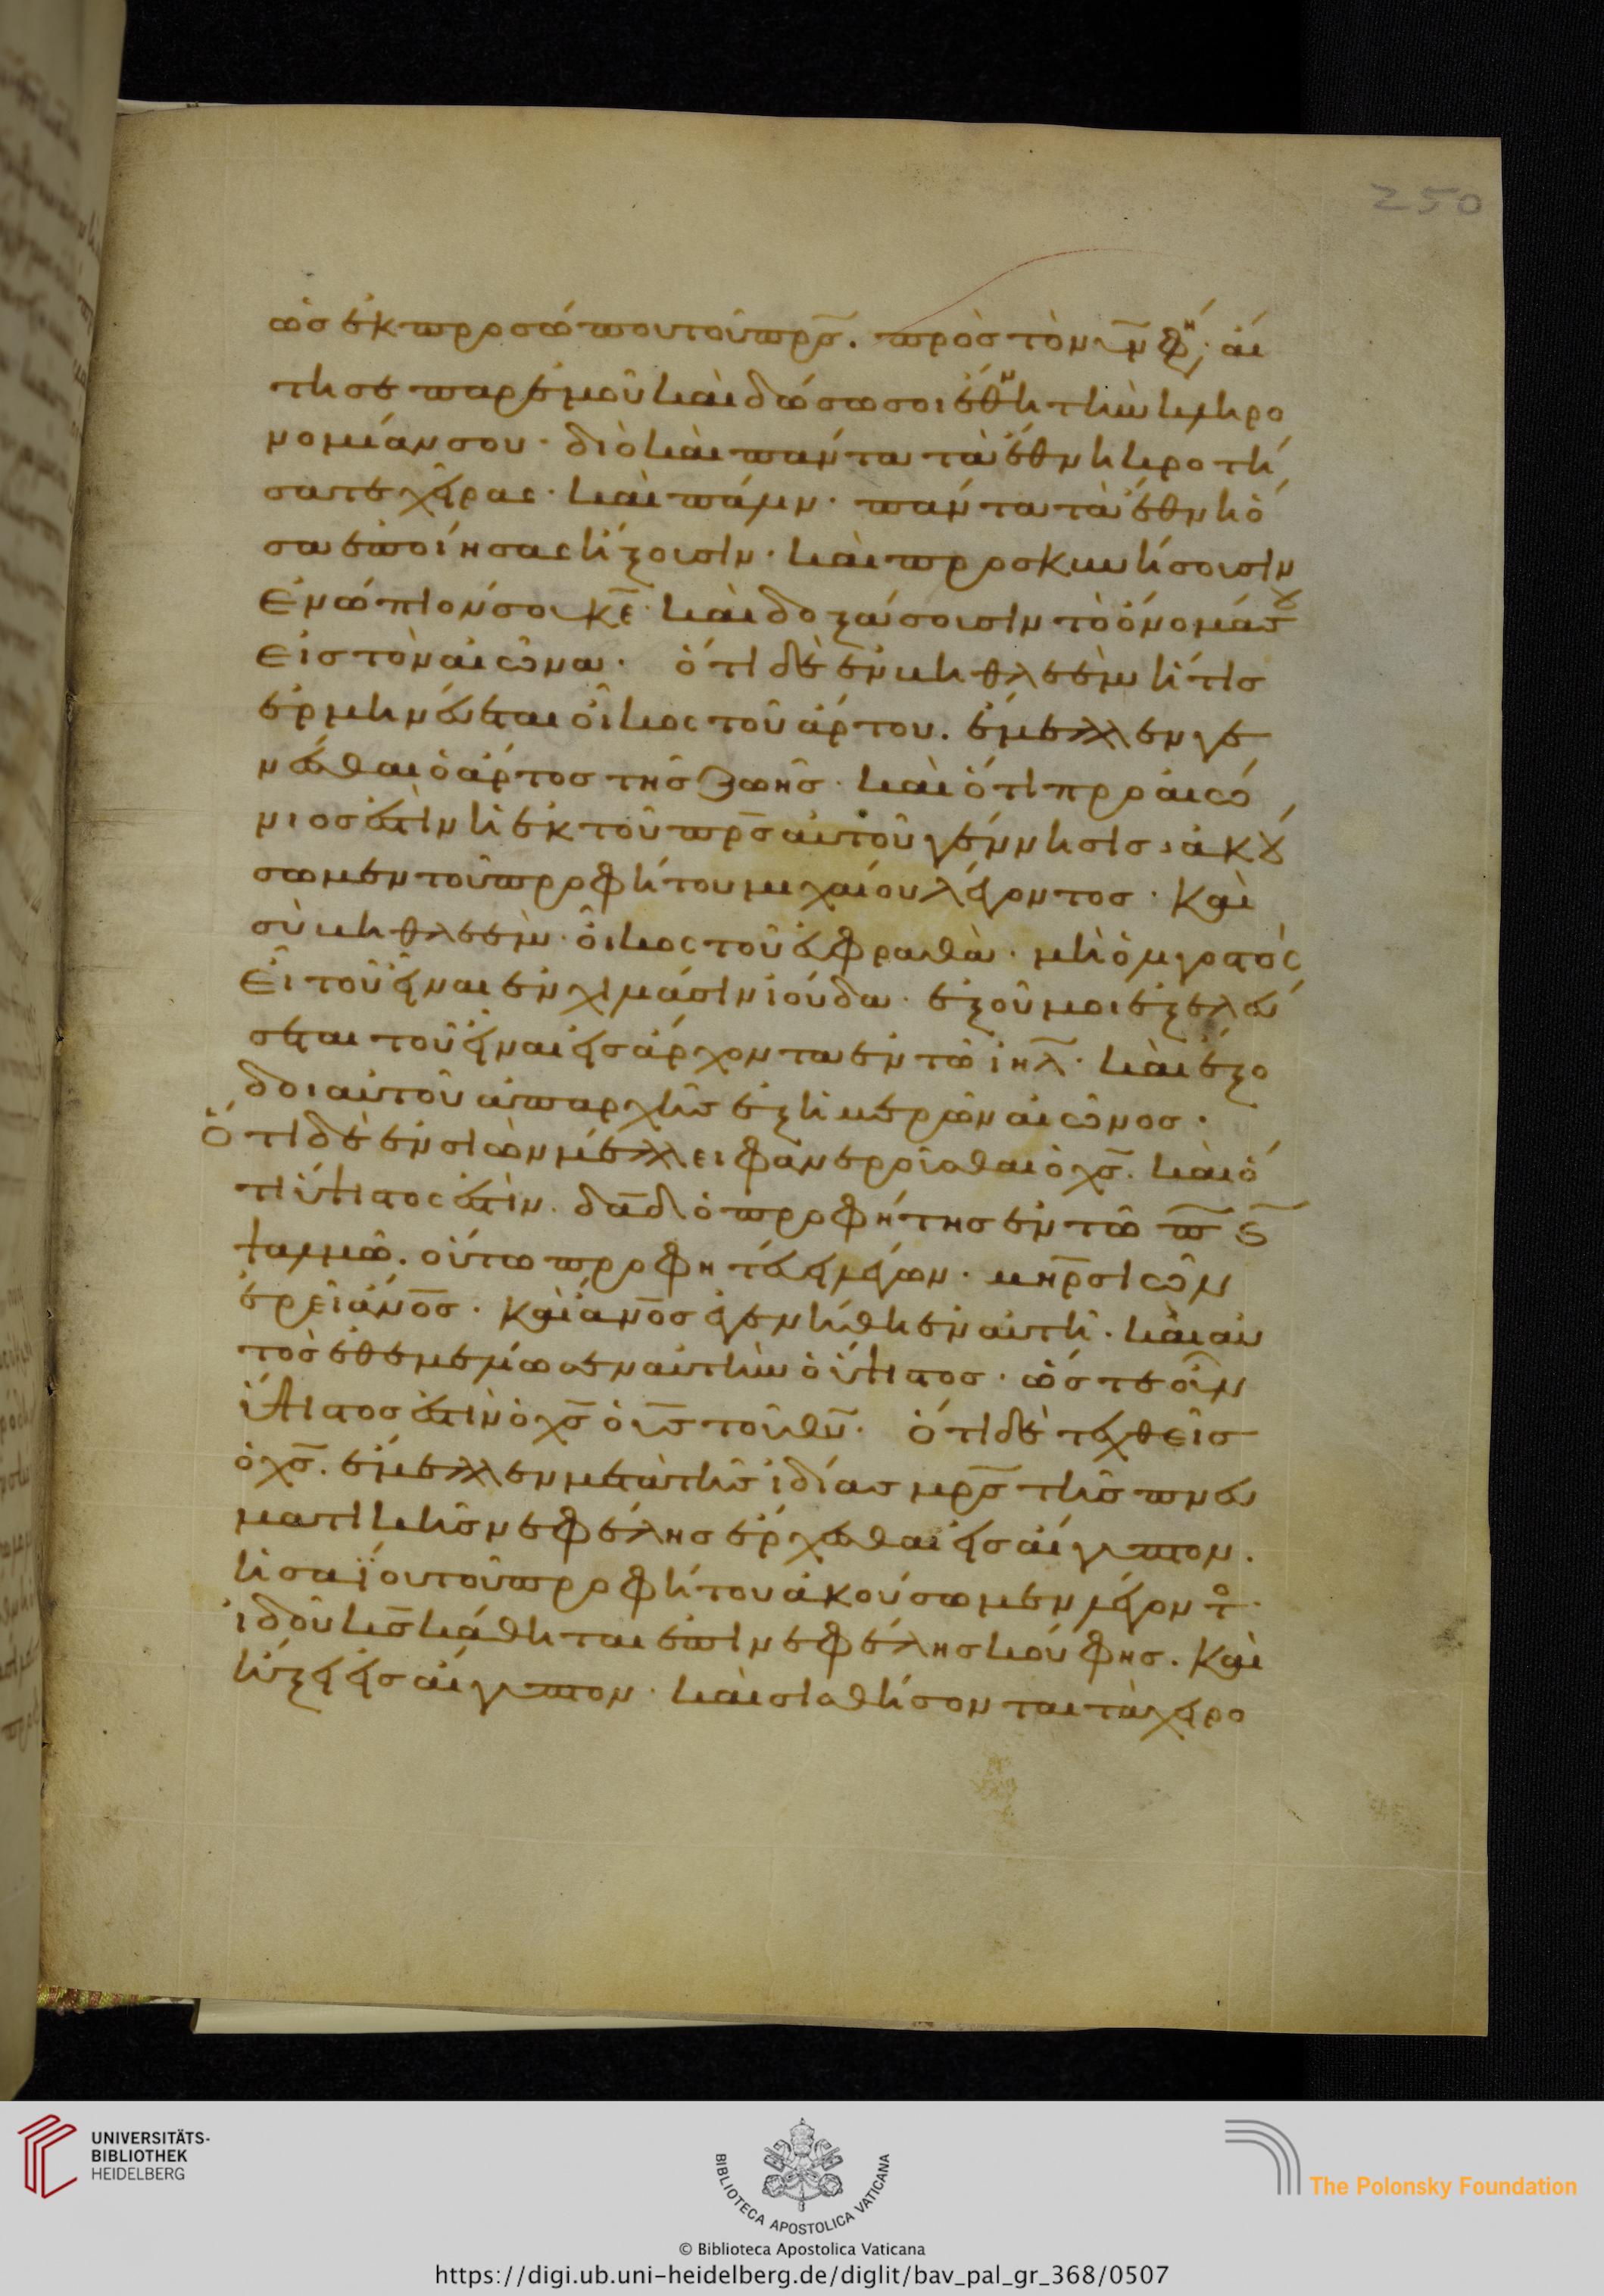 250
ὡς ἐκ προσώπου τοῦ πρς̄. πρὸς τὸν ῡν φη· αἴ
τησε παρ' ἐμοῦ καὶ δώσω σοι ἔθνη τὴν κληρο
νομίαν σου· διὸ καὶ πάντα τὰ ἔθνη κροτή
σατε χεῖρας· καὶ πάλιν· πάντα τὰ ἔθνη ὅ
σα ἐποίησας ἥξουσιν· καὶ προσκυνήσουσιν
ἐνώπιόν σου κ̄ε· καὶ δοξάσουσιν τὸ ὄνομά σου
εἰς τὸν αἰῶνα· ὅτι δὲ ἐν βηθλεὲμ ἥτις
ἑρμηνεύεται οἶκος τοῦ ἄρτου. ἔμελλεν γε
νέσθαι ὁ ἄρτος τῆς ζωῆς· καὶ ὅτι προαιώ
νιος ἐστιν ἡ ἐκ τοῦ πρς̄ αὐτοῦ γέννησις, ἀκού
σωμεν τοῦ προφήτου μιχαίου λέγοντος· καὶ
σὺ βηθλεὲμ· οἶκος τοῦ ἐφραθὰ· μὴ ὀλιγοστὸς
εἶ τοῦ εἶναι ἐν χιλιάσιν ἰούδα· ἐξ οὗ μοι ἐξελεύ
σεται τοῦ εἶναι εἰς ἄρχοντα ἐν τῶ ιη̄λ· καὶ ἔξο
δοι αὐτοῦ ἀπαρχῆς ἐξ ἡμερῶν αἰῶνος·
ὅτι δὲ ἐν σιὼν μέλλει φανεροῦσθαι ὁ χς̄. καὶ ὁ
τι ὕψιστος ἐστὶν. δᾱδ ὁ προφήτης ἐν τῶ π̄ϛ̄
ψαλμῶ. οὕτω προφητεύει λέγων· μη̄ρ σιὼν
ἐρεῖ ᾱνος· καὶ ᾱνος ἐγενήθη ἐν αὐτῆ· καὶ αὐ
τὸς ἐθεμελίωσεν αὐτὴν ὁ ὕψιστος· ὥστε οὖν
ὕψιστος ἐστὶν ὁ χς̄ ὁ ῡς τοῦ θῡ· ὅτι δὲ τεχθεὶς
ὁ χς̄. ἔμελλεν μετὰ τῆς ἰδίας μρ̄ς τῆς πνευ
ματικῆς νεφέλης ἔρχεσθαι εἰς αἴγυπτον.
ἡσαΐου τοῦ προφήτου ἀκούσωμεν λέγοντο·
ἰδοὺ κς̄ κάθηται ἐπὶ νεφέλης κούφης. καὶ
ἥξει εἰς αἴγυπτον· καὶ σισθήσονται τὰ χειρο
UNIVERSITÄTS-
BIBLIOTHEK
HEIDELBERG
BIBLIOTECA APOSTOLICA VATICANA
The Polonsky Foundation
© Biblioteca Apostolica Vaticana
https://digi.ub.uni-heidelberg.de/diglit/bav_pal_gr_368/0507